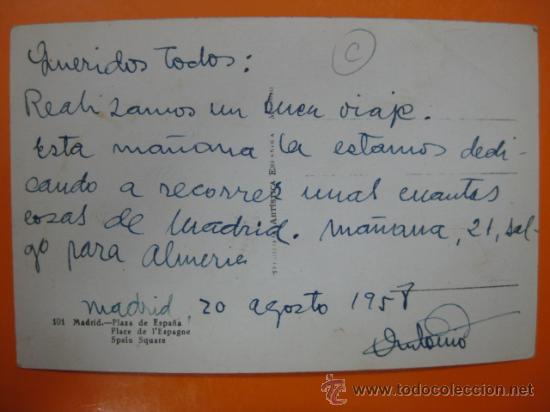 Queridos Todos:
C
Realizamos un buen viaje.
Esta mañana la estamos dedi-
cando a recorrer unas cuantas
cosas de Madrid. Mañana, 21, sal-
go para Almeria
Madrid, 20 agosto 1957
Antonio
101 Madrid.—Plaza de España
Place de l'Espagne
Spain Square
todocoleccion
www.todocoleccion.net